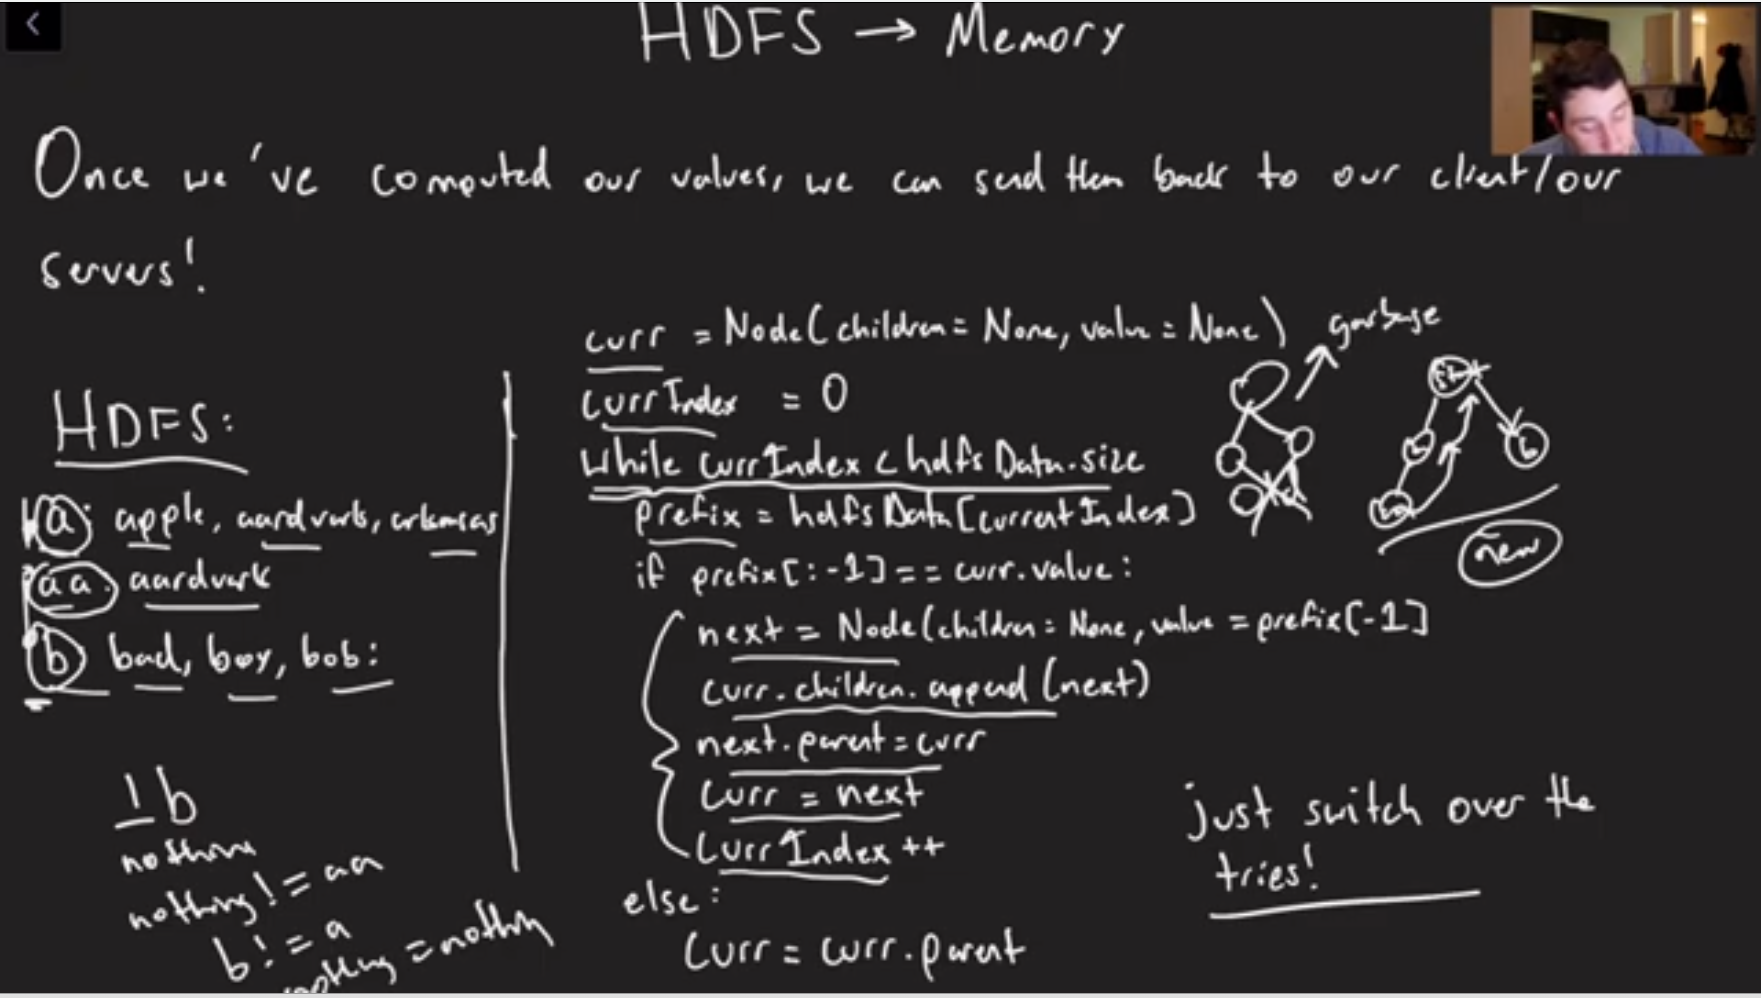 HDFS → Memory
Once we've computed our values, we can send them back to our client/our
servers!
HDFS:
a: apple, aardvark, arkansas
aa: aardvark
b: bad, boy, bob:
b
nothing
nothing != aa
b != a
nothing = nothing
curr = Node(children = None, value = None)
currIndex = 0
while currIndex < hdfsData.size
prefix = hdfsData[currentIndex]
if prefix[:-1] == curr.value:
next = Node(children = None, value = prefix[-1]
curr.children.append(next)
next.parent = curr
curr = next
currIndex++
else:
curr = curr.parent
garbage
b
new
just switch over the
tries!